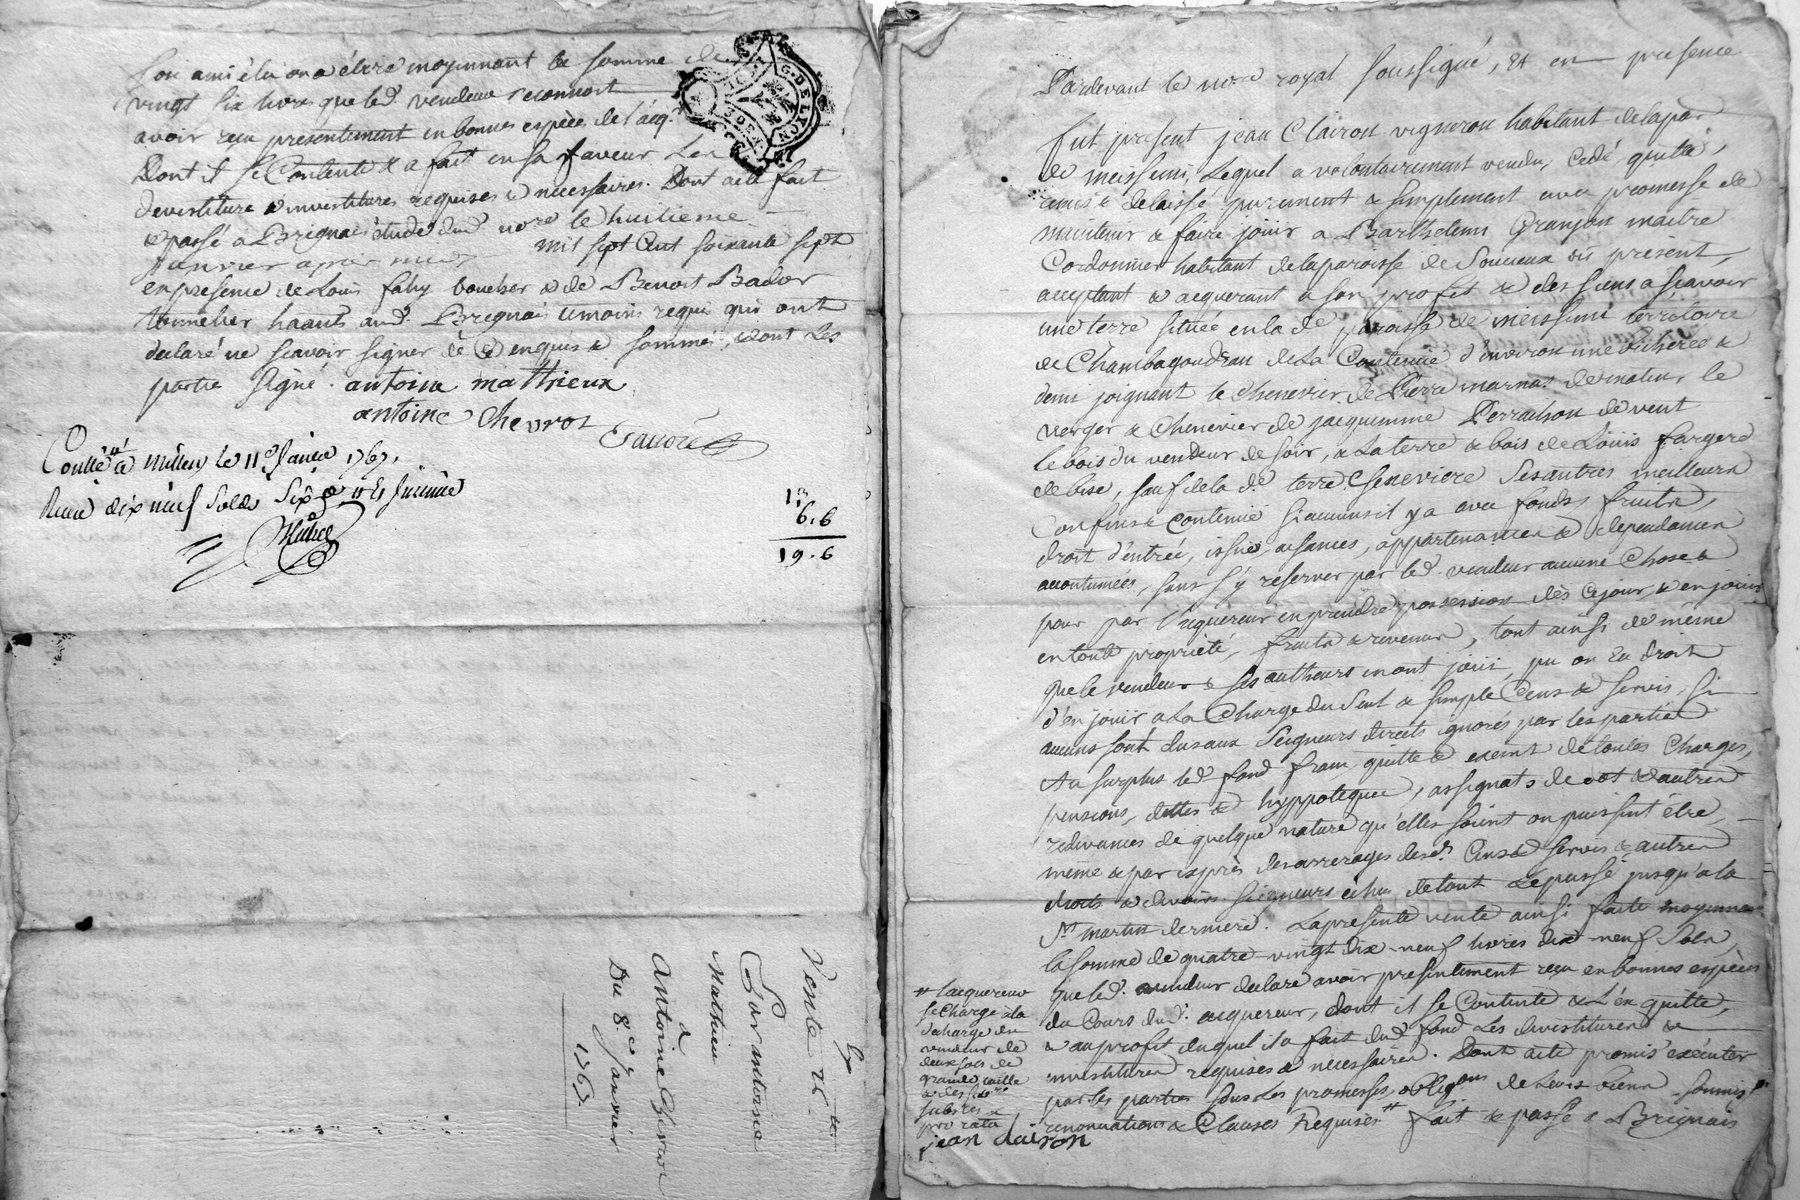 son ami élu ou a élire moyennant la somme de
vingt six livres que led. vendeur reconnoit
avoir reçu presentement en bonnes espèces de l'acq.r
Dont il se Contente & a fait en sa faveur Les
devestiture & investitures requises & necessaires. Dont acte fait
& passé a Brignais étude dud. no.re le huitieme
Janvier apres midy mil sept Cent soixante sept
en presence de Louis fahy boucher & de Benoit Bador
tonnelier haants aud. Brignais temoins requis qui ont
declaré ne scavoir signer de ce enquis & sommés, & ont Les
partie signé. antoine mathieux
antoine Chevrot
Contllé a Millery le 11e Janvier 1767.
Receu dix neuf Solds Six
13
6. 6
19. 6
G. DE LYON
Vente 26 l.
Par antoine
Mathieu
a
Antoine Chevrot
Du 8.e Janvier
1767
Pardevant le no.re royal soussigné, & en presence
fut present jean Clairon vigneron habitant de la par
de meissimi, Lequel a volontairement vendu, cedé, quitté,
remis & delaissé purement & simplement avec promesse de
maintenir & faire jouir a Barthelemi Granjon maitre
Cordonnier habitant de la paroisse de Soucieux ici present,
acceptant & acquerant a son profit & des siens a scavoir
une terre située en la de. paroisse de meissimi térritoire
de Chambagoudran de La Contenue d'environ une bicherée &
demi joignant le chenevier de Pierre marnas de matin, le
verger & chenevier de jacquemme Perrachon de vent
le bois du vendeur de soir, & La terre & bois de Loüis fargere
de bise, sauf de la de. terre & cheneviere Ses autres meilleurs
Confins & contenüe si aucuns il y a avec fonds, fruits,
droit d'entrée, issüe, aisances, appartenances & dependances
accoutumées, sans s'y reserver par led. vendeur aucune Chose &
pour par l'acquereur en prendre possession dès ce jour, & en jouir
en toute propriété, fruits & revenus, tout ainsi de même
que le vendeur & ses autheurs en ont joüi, pu ou eu droit
d'en jouir a La Charge du seul & simple Cens & servis, si
aucuns sont dus aux Seigneurs directs ignorés par les parties
Au surplus led. fond franc, quitte & exemt de toutes Charges,
pensions, dettes & hyppoteques, assignats de dot & autres
redevances de quelque nature qu'elles soient ou puissent être,
même & par exprès des arrerages desd. Cens & servis & autres
droits & devoirs Seigneurs échus de tout Le passé jusqu'a la
St martin derniere. La presente vente ainsi faite moyennant
la somme de quatre-vingt dix-neuf livres dix-neuf Sols,
que led. vendeur declare avoir presentement reçu en bonnes espèces
du Cours dud. acquereur, dont il se Contente & L'en quitte,
& au profit duquel il a fait dud. fond Les devestitures &
investitures requises & necessaires. Dont acte promis exécuter
par les parties sous Les promesses, obligons de Leurs biens, soumis.ons
renonciations & Clauses Requises # fait & passé a Brignais
# Lacquereur
se Charge a la
decharge du
vendeur de
deux sols de
grande taille
subsides
pro rata
jean clairon